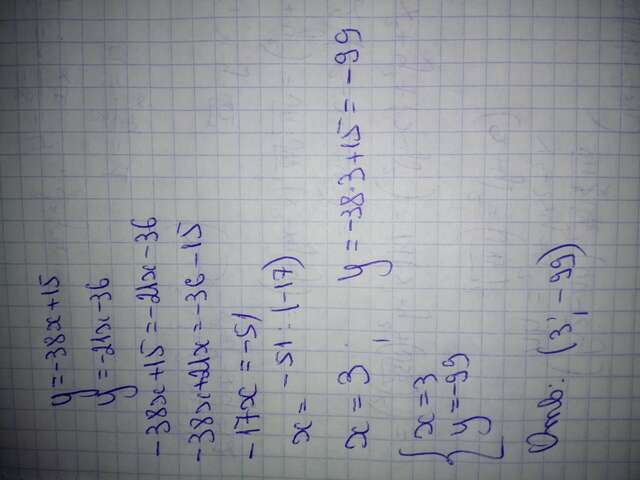 y=-38x+15
y=-21x-36
-38x+15=-21x-36
-38x+21x=-36-15
-17x=-51
x= -51:(-17)
x=3, y=-38·3+15=-99
{x=3
y=-99
Отв: (3; -99)